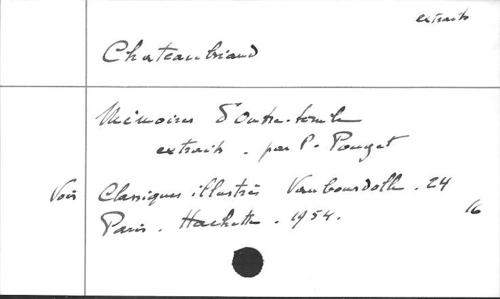 extraits
Chateaubriand
Mémoires d'Outre-tombe
extraits. par P. Pouget
Voir Classiques illustrés Vaubourdolle. 24
Paris. Hachette. 1954. 16